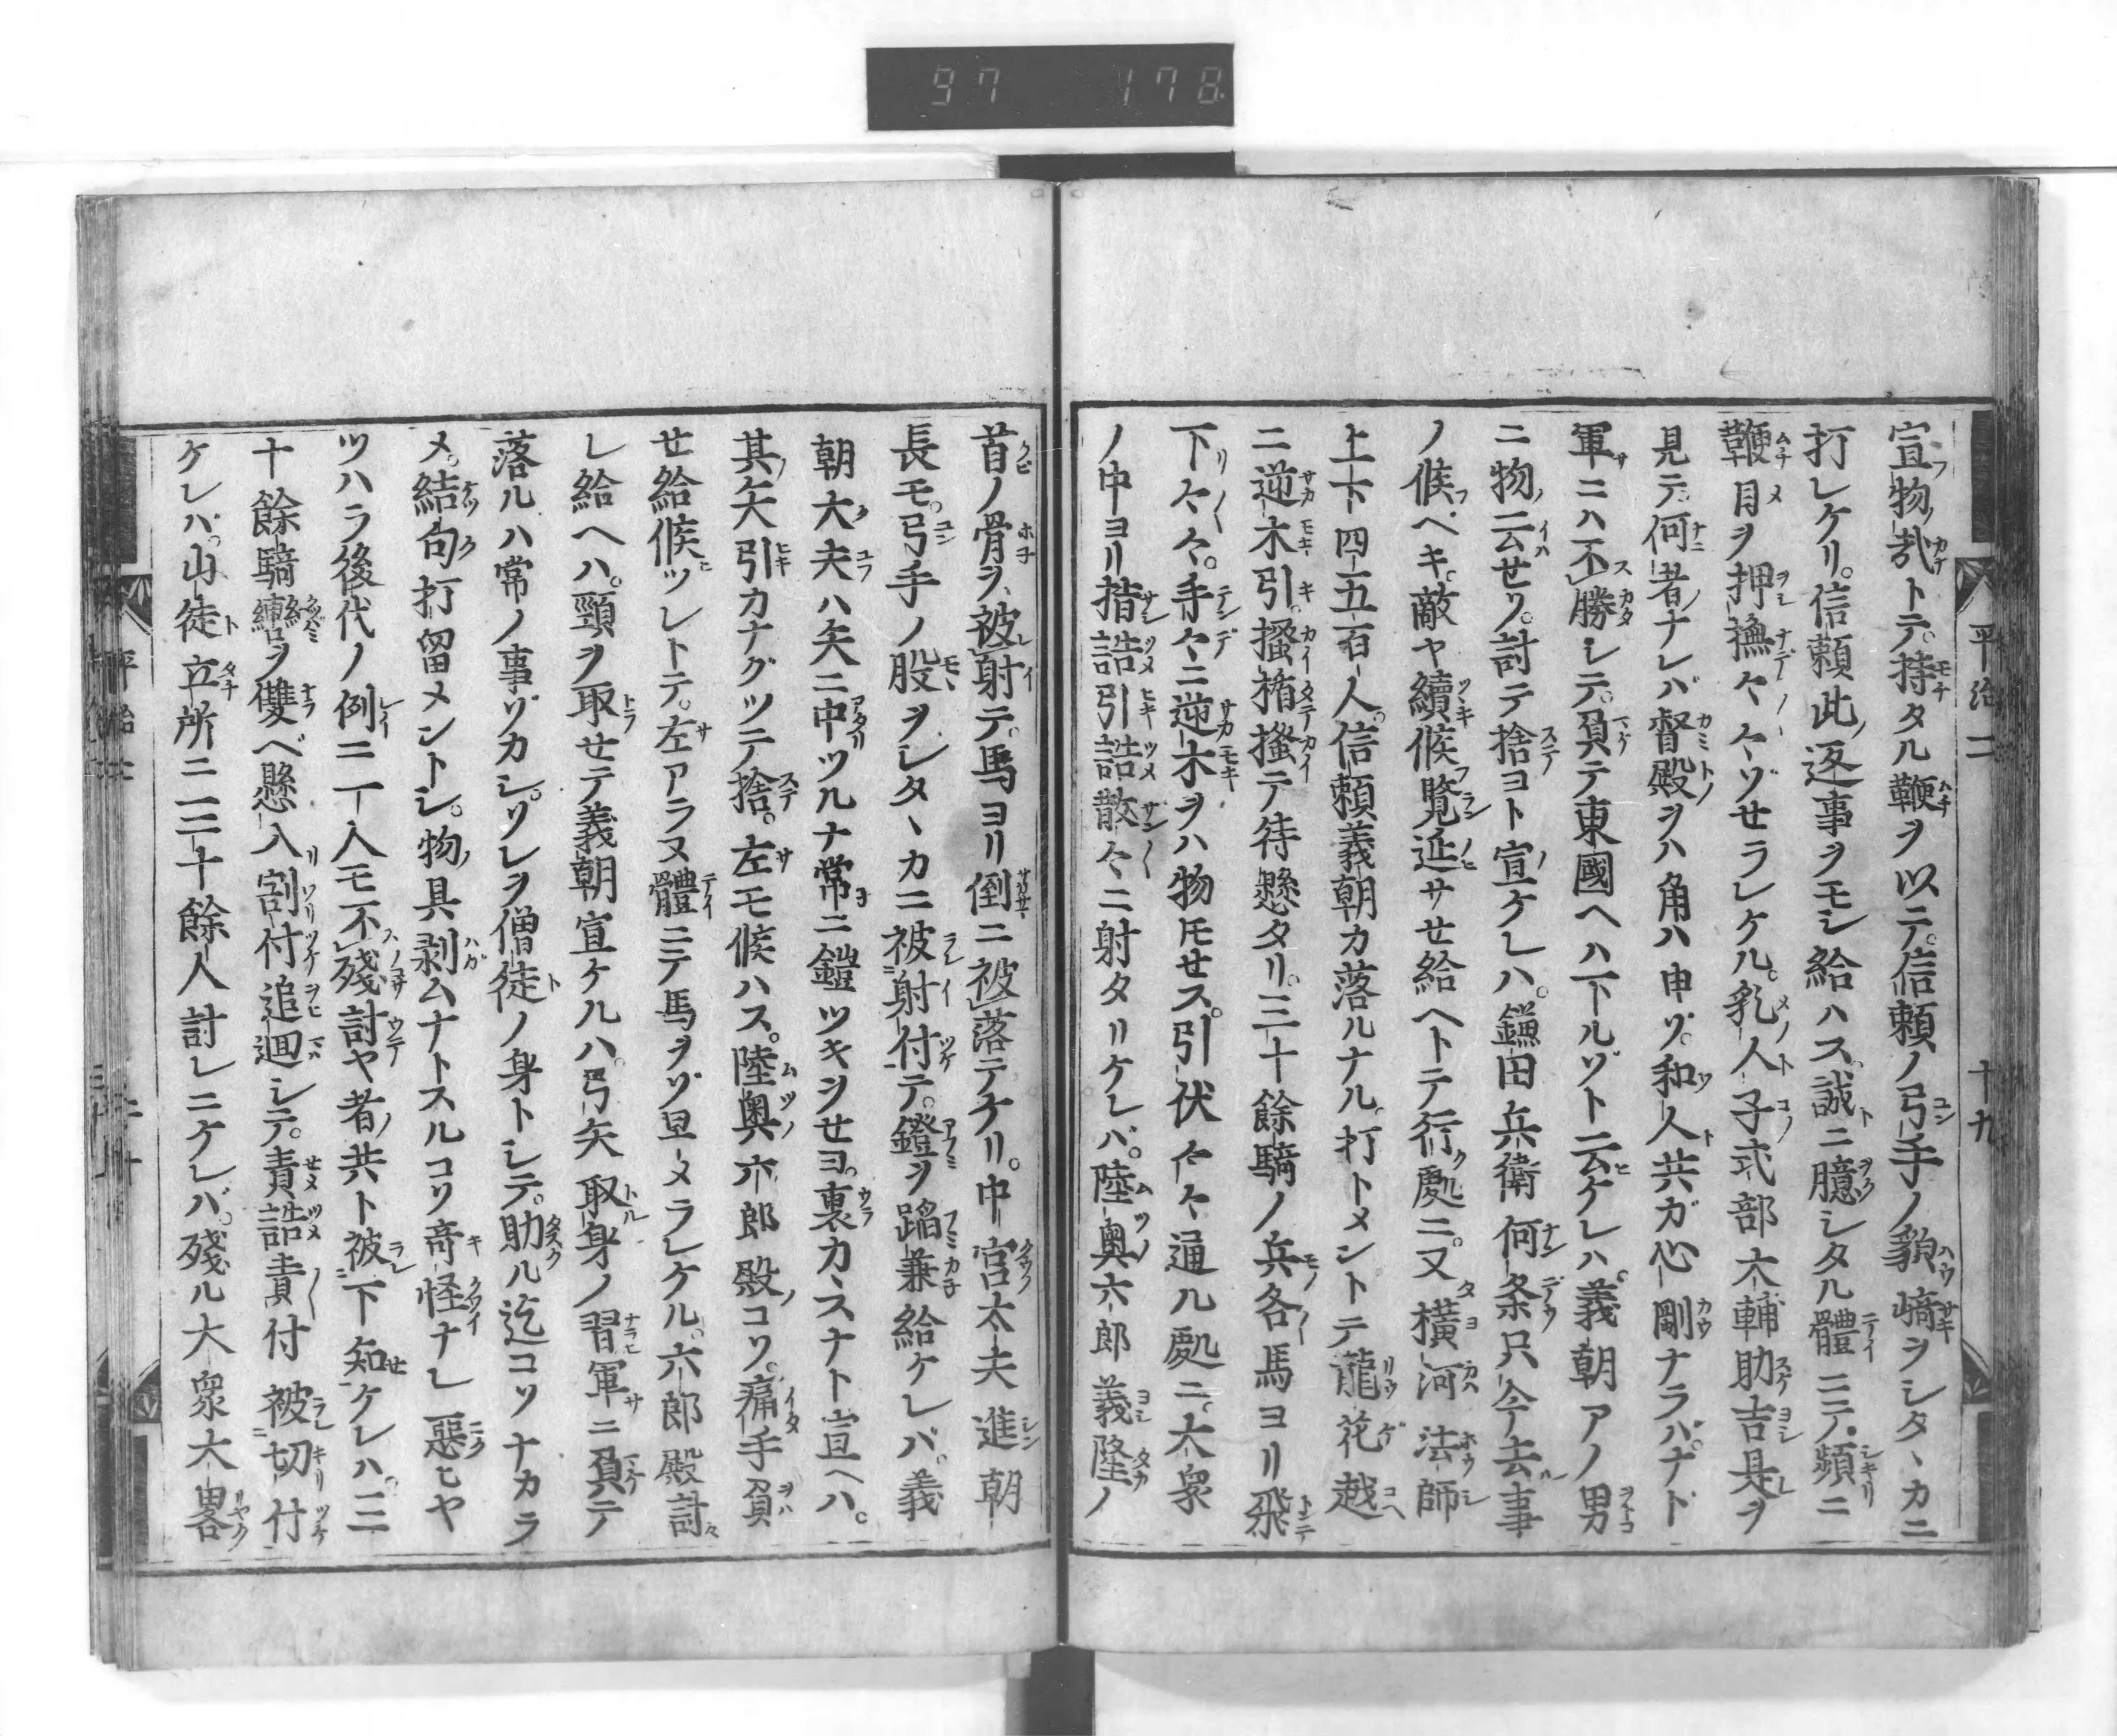 97 178
平治二 十九
宣物哉トテ。持タル鞭ヲ以テ。信頼ノ弓手ノ貌﨑ヲシタヽカニ
打レケリ。信頼此返事ヲモシ給ハス。誠ニ臆シタル體ニテ。頻ニ
鞭目ヲ押撫々々ゾセラレケル。乳人子式部大輔助吉是ヲ
見テ。何者ナレバ督殿ヲハ角ハ申ゾ。和人共ガ心剛ナラバ。ナド
軍ニハ不勝シテ。負テ東國ヘハ下ルゾト云ケレハ。義朝アノ男
ニ物云セソ。討テ捨ヨト宣ケレハ。鎌田兵衛何条只今去事
ノ候ヘキ。敵ヤ續候覧延サセ給ヘトテ行處ニ。又横河法師
上下四五百人。信頼義朝カ落ルナル。打トメントテ龍花越
ニ逆木引。掻楯掻テ待懸タリ。三十餘騎ノ兵各馬ヨリ飛
下々々。手々ニ逆木ヲハ物トモセス。引伏々々通ル處ニ。大衆
ノ中ヨリ指詰引詰散々ニ射タリケレバ。陸奥六郎義隆ノ
首ノ骨ヲ被射テ。馬ヨリ倒ニ被落テケリ。中宮太夫進朝
長モ。弓手ノ股ヲシタヽカニ被射付テ。鐙ヲ蹈兼給ケレバ。義
朝大夫ハ矢ニ中ツルナ常ニ鎧ツキヲセヨ。裏カヽスナト宣ヘハ。
其矢引カナグツテ捨。左モ候ハス。陸奥六郎殿コソ。痛手負
セ給候ツレトテ。左アラヌ體ニテ馬ヲゾ早メラレケル。六郎殿討
レ給ヘハ。頸ヲ取セテ義朝宣ケルハ。弓矢取身ノ習軍ニ負テ
落ルハ常ノ事ゾカシ。ソレヲ僧徒ノ身トシテ。助ル迄コソナカラ
メ。結句打留メントシ。物具剥ムナトスルコソ奇怪ナレ惡ヒヤ
ツハラ後代ノ例ニ一人モ不殘討ヤ者共ト被下知ケレハ。三
十餘騎轡ヲ雙ベ懸入割付追廻シテ。責詰責付被切付
ケレバ。山徒立所ニ三十餘人討レニケレバ。殘ル大衆大畧
平治二 二十